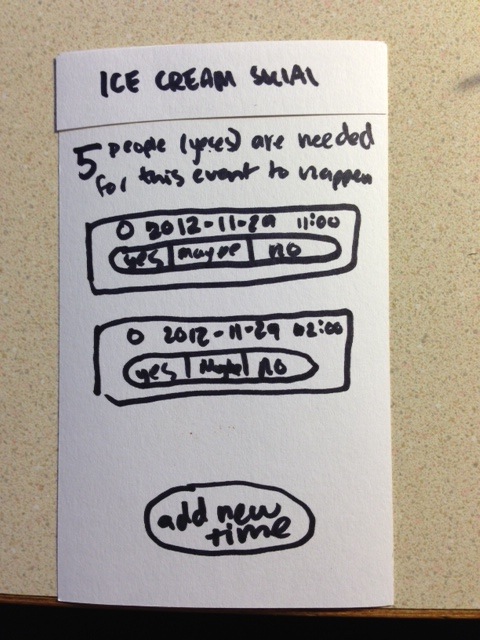 ICE CREAM SOCIAL
5 people (yeses) are needed
for this event to happen
0 2012-11-29 11:00
yes maybe no
0 2012-11-29 02:00
yes Maybe no
add new
time